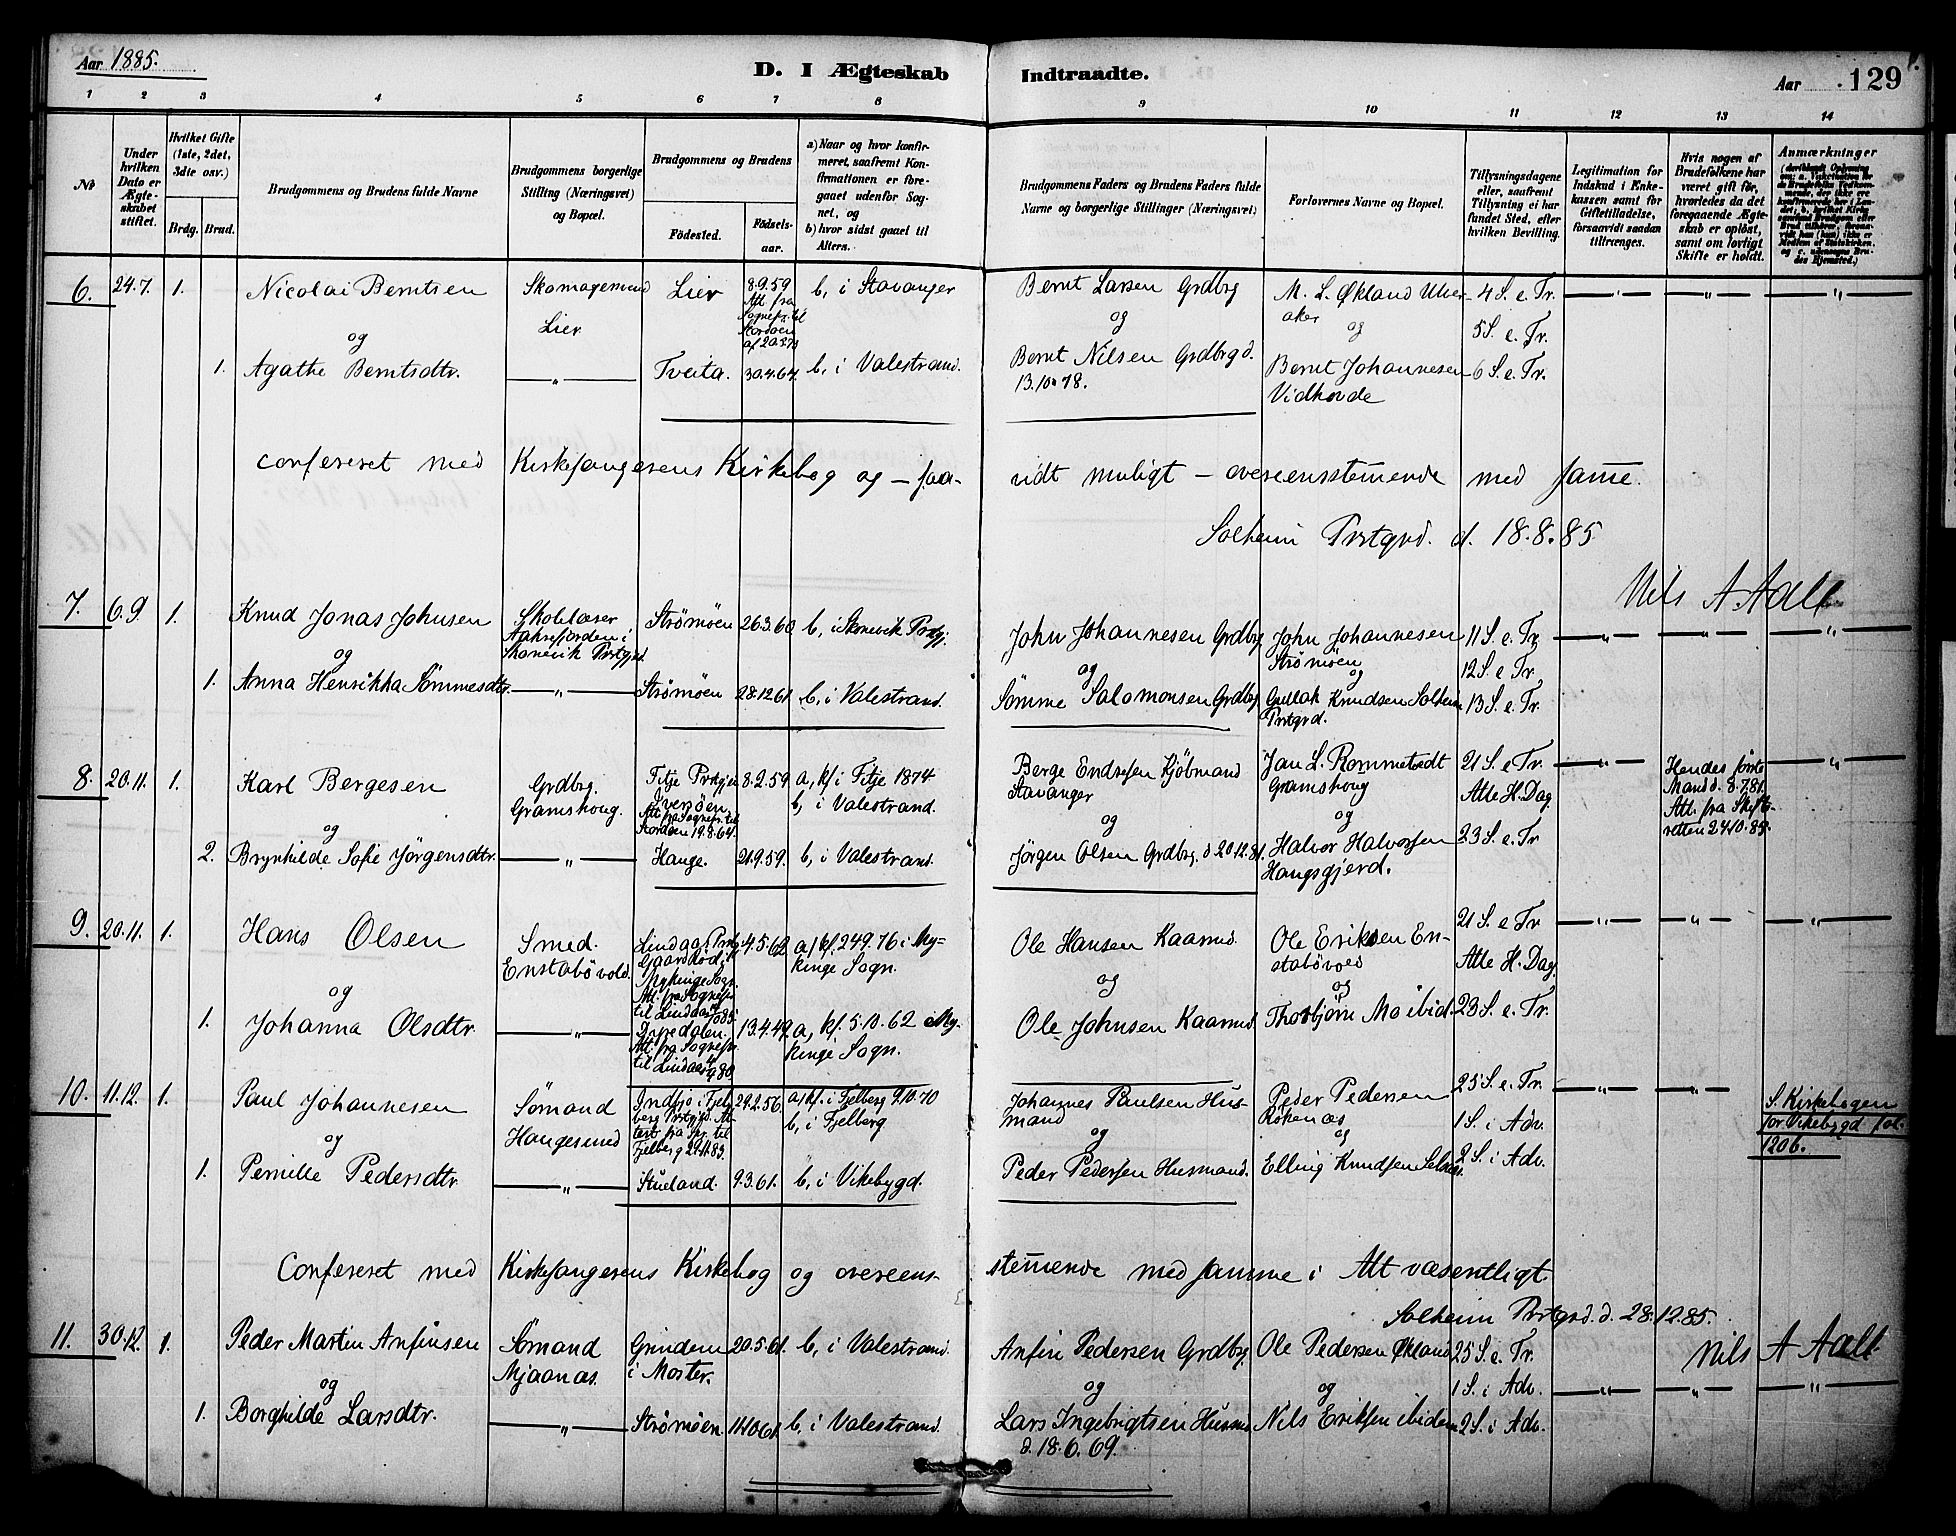 Aar 1885.
D. I Ægteskab Indtraadte.
Aar 129
1 2 3 4 5 6 7 8 9 10 11 12 13 14
No
Under hvilken Dato er Ægteskabet stiftet.
Hvilket Gifte (1ste, 2det, 3die osv.)
Brdg. Brud.
Brudgommens og Brudens fulde Navne
Brudgommens borgerlige Stilling (Næringsvei) og Bopæl.
Brudgommens og Brudens
Fødested.
Fødsels-aar.
a) Naar og hvor konfirmeret, saafremt Konfirmationen er foregaaet udenfor Sognet, og
b) hvor sidst gaaet til Alters.
Brudgommens Faders og Brudens Faders fulde Navne og borgerlige Stillinger (Næringsvei)
Forlovernes Navne og Bopæl.
Tillysningsdagene eller, saafremt Tillysning ei har fundet Sted, efter hvilken Bevilling.
Legitimation for Indskud i Enkekassen samt for Giftetilladelse, forsaavidt saadan tiltrænges.
Hvis nogen af Brudefolkene har været gift før, hvorledes da det foregaaende Ægteskab er opløst, samt om lovligt Skifte er holdt.
Anmærkninger
6. 24.7. 1. Nicolai Berntsen Skomagersvend Lier Lier 8.9.59 b, i Stavanger Bernt Larsen Grdbrg M. L. Økland Ulveraker 4 S. e. Tr.
Att. fra Sognepr. til Stordøen
og og og 5 S. e. Tr.
1. Agathe Berntsdtr. Tveita. 30.4.64. b, i Valestrand. Bernt Nilsen Grdbrg d. 13.10.78. Bernt Johannesen Vidhovde 6 S. e. Tr.
confereret med Kirkesangerens Kirkebog og – saavidt muligt – overeensstemmende med samme.
Solheim Prstgrd. d. 18.8.85
Nils A Aall
7. 6.9 1. Knud Jonas Johnsen Skolelærer Aakrefjorden i Skonevik Prstgjd. Strømøen 26.3.60 b, i Skonevik Prstgj. John Johannesen Grdbrg John Johannesen Strømøen 11 S. e. Tr.
og og og 12 S. e Tr.
1. Anna Henrikka Sømmesdtr. Strømøen 28.12.61. b, i Valestrand. Sømme Salomonsen Grdbrg Gullak Knudsen Solheim Prstgrd. 13 S. e. Tr.
8. 20.11. 1. Karl Bergesen Grdbrg. Gramshoug. Fitje Prstgjeld 8.2.59 a, kf i Fitje 1874 b, i Valestrand. Berge Endresen Kjöbmand Stavanger Jan L. Rommetvedt Gramshoug 21 S. e Tr. Alle H. Dag
Att. fra Sognepr. til Stordøen 19.8.64.
Hendes første Mand d. 8.7.81. Att. fra Skifteretten 24.10.85.
og og og
2. Brynhilde Sofie Jörgensdtr. Hauge. 21.9.59. b, i Valestrand. Jörgen Olsen Grdbrg. d 20.12.81. Halvor Halvorsen Haugsgjerd. 23 S. e. Tr.
9. 20.11. 1. Hans Olsen Smed. Enstabövold. 4.5.62 a, kf. 24.9.76 i Mykinge Sogn. Ole Hansen Kaarud. Ole Eriksen Enstabövold 21 S. e Tr. Alle H. Dag.
Lindaas Prstg. Mykinge Sogn. Att. fra Sognepr. til Lindaas
og og og
1. Johanna Olsdtr. Dyredalen. 13.4.49. a, kf. 5.10.62 i Mykinge Sogn. Ole Johnsen Kaarud. Thorbjörn Mo ibid. 23 S. e. Tr.
Att. fra Sognepr. til Lindaas
10. 11.12. 1. Paul Johannesen Sømand Haugesund Indsjø i Fjelberg Prstgjd. Attest fra Spr. til Fjelberg 29.11.85. 29.2.56. a, kf. i Fjelberg 9.10.70 b, i Fjelberg Johannes Paulsen Husmand Peder Pedersen Røkenæs 25 S. e. Tr. 1 S. i Adv.
S. Kirkebogen for Vikebygd fol. 120 6.
og og og
1. Pernille Pedersdtr. Stueland. 9.3.61. b, i Vikebygd. Peder Pedersen Husmand. Elling Knudsen 2 S. i Adv.
Confereret med Kirkesangerens Kirkebog og overeensstemmende med samme i Alt væsentligt.
Solheim Prstgrd. d. 28.12.85.
Nils A Aall
11. 30.12. 1. Peder Martin Anfinsen Sømand Mjaanæs. Grindem i Moster. 20.5.61. b, i Valestrand. Anfin Pedersen Grdbrg. Ole Pedersen Økland 25 S. e. Tr.
og og og 1 S. i Adv.
1. Borghilde Larsdtr. Strømøen. 11.10.61. b, i Valestrand. Lars Ingebrigtsen Husmd d. 18.6.69. Nils Eriksen ibidem 2 S. i Adv.